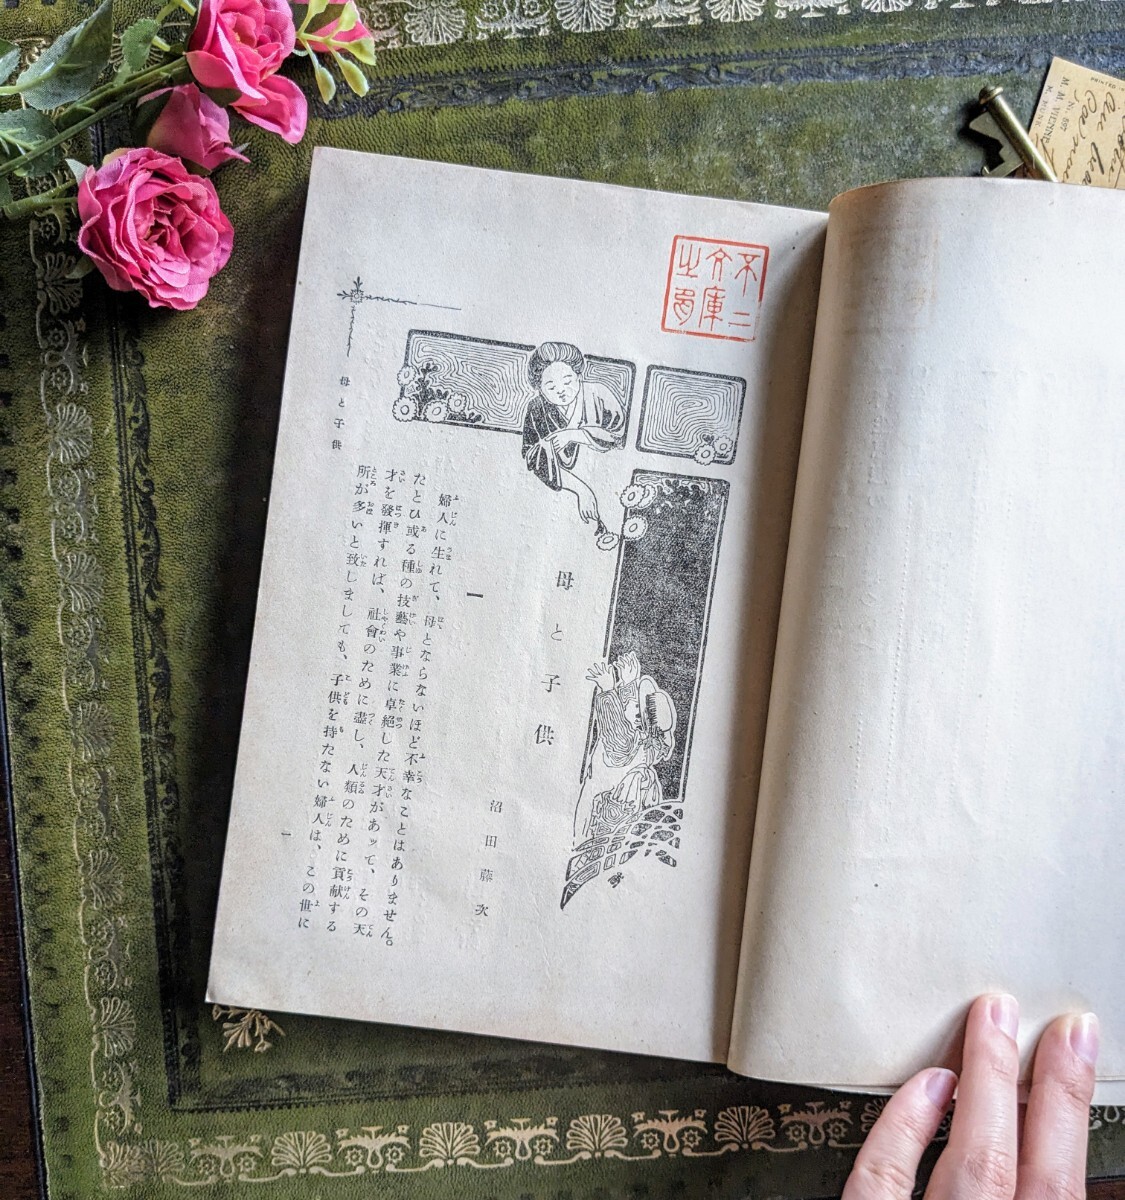 不二
文庫
之
母と子供
沼田藤次
一
婦人に生れて、母とならないほど不幸なことはありません。
たとひ或る種の技藝や事業に卓絶した天才があッて、その天
才を發揮すれば、社會のために盡し、人類のために貢献する
所が多いと致しましても、子供を持たない婦人は、この世に
母と子供
一
M. M. VIENNE
No. 597